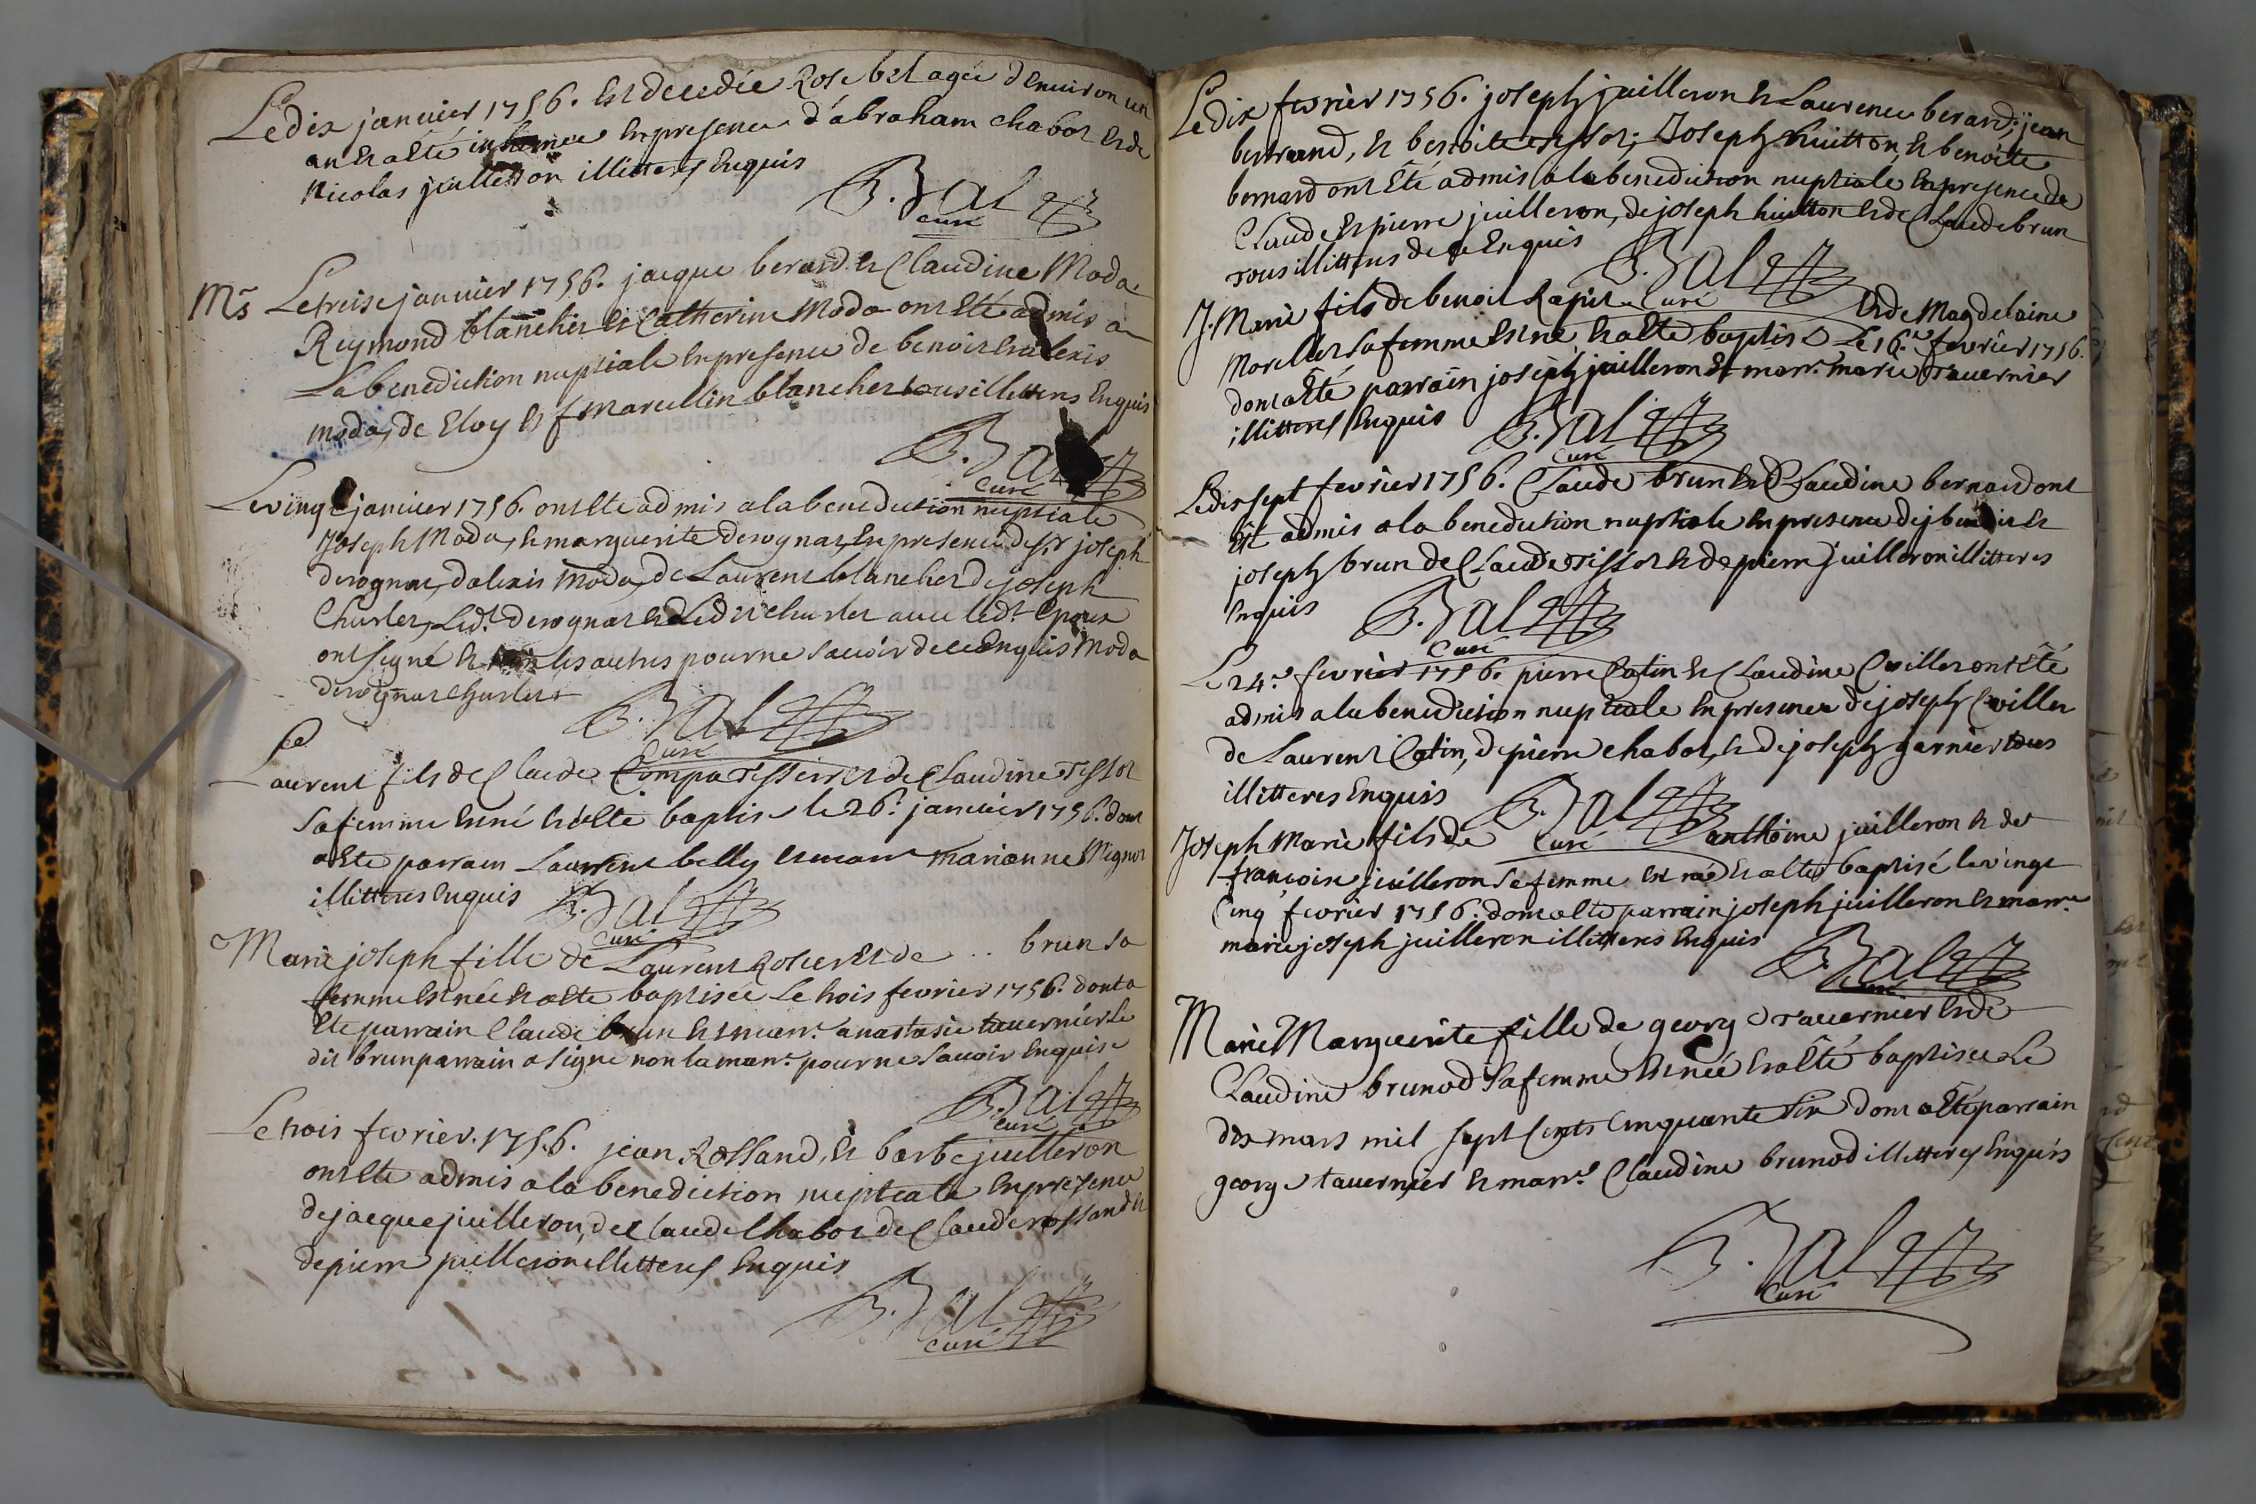 Le dix janvier 1756. Est decedée Rose bel agée d'environ un
an Et a Eté inhumée En presence d'abraham chabot Et de
Nicolas juilleron illitteres Enquis
B. Bal
curé
Ms Le treise janvier 1756. jacque berard Et Claudine Moda
Reymond blanchet Et Catherine Moda ont Eté admis a
La benediction nuptiale En presence de benoit Et alexis
moda, de Eloy Et marcellin blanchet tous illitteres Enquis
B. Bal
curé
Le vingt janvier 1756. ont Eté admis a la benediction nuptiale
Joseph Moda, Et marguerite devognat, En presence de Sr joseph
devognat, d'alexis Moda, de Laurent blanchet de joseph
Charlet, Led.t devognat Et Ledit Charlet avec led.t Epoux
ont signé Et non les autres pour ne savoir de ce Enquis Moda
devognat Charlet
B. Bal
Curé
Ce
Laurent fils de Claude Compa Tisserret de Claudine Tissot
sa femme Est né Et a Eté baptisé le 26.e janvier 1756. dont
a Eté parrain Laurent belly Et marr. marianne Mignot
illitteres Enquis
B. Bal
curé
Marie joseph fille de Laurent Roset Et de .. brun sa
femme Est née Et a Eté baptisée Le trois fevrier 1756. dont a
Eté parrain Claude brun Et marr.e anastasie tavernier Le
dit brun parrain a signé non la marr.e pour ne savoir Enquise
B. Bal
curé
Le trois fevrier. 1756. jean Rossand, Et barbe juilleron
ont Eté admis a la benediction nuptiale En presence
de jacque juilleron, de Claude Chabot de Claude rossand Et
de pierre juilleron illitteres Enquis
B. Bal
curé
Le dix fevrier 1756. joseph juilleron Et Laurence berard; jean
bertrand, Et benoite tissot; Joseph huitton, Et benoite
bernard ont Eté admis a la benediction nuptiale En presence de
Claude Et pierre juilleron, de joseph huitton Et de Claude brun
tous illitteres de ce Enquis
B. Bal
Curé
J. Marie fils de benoit Rapit Et de Magdelaine
Morellet sa femme Est né Et a Eté baptisé Le 16.e fevrier 1756.
dont a Eté parrain joseph juilleron Et marr.e marie Tavernier
illitteres Enquis
B. Bal
Curé
Le dix sept fevrier 1756. Claude brun Et Claudine bernard ont
Eté admis a la benediction nuptiale En presence de j benoit Et
joseph brun de Claude Tissot Et de pierre juilleron illitteres
Enquis
B. Bal
Curé
Le 24.e fevrier 1756. pierre Catin Et Claudine Cuillet ont Eté
admis a la benediction nuptiale En presence de joseph Cuillet
de Laurent Catin, de pierre chabot, Et de joseph garnier tous
illitteres Enquis
B. Bal
Curé
Joseph Marie fils de anthoine juilleron Et de
francoise juilleron sa femme Est né Et a Eté baptisé le vingt
Cinq fevrier 1756. dont a Eté parrain joseph juilleron Et marr.e
marie joseph juilleron illitteres Enquis
B. Bal
Curé
Marie Marguerite fille de george Tavernier Et de
Claudine brunod sa femme Est née Et a Eté baptisée Le
dix mars mil sept Cents Cinquante Six dont a Eté parrain
george tavernier Et marr.e Claudine brunod illitteres Enquis
B. Bal
Curé